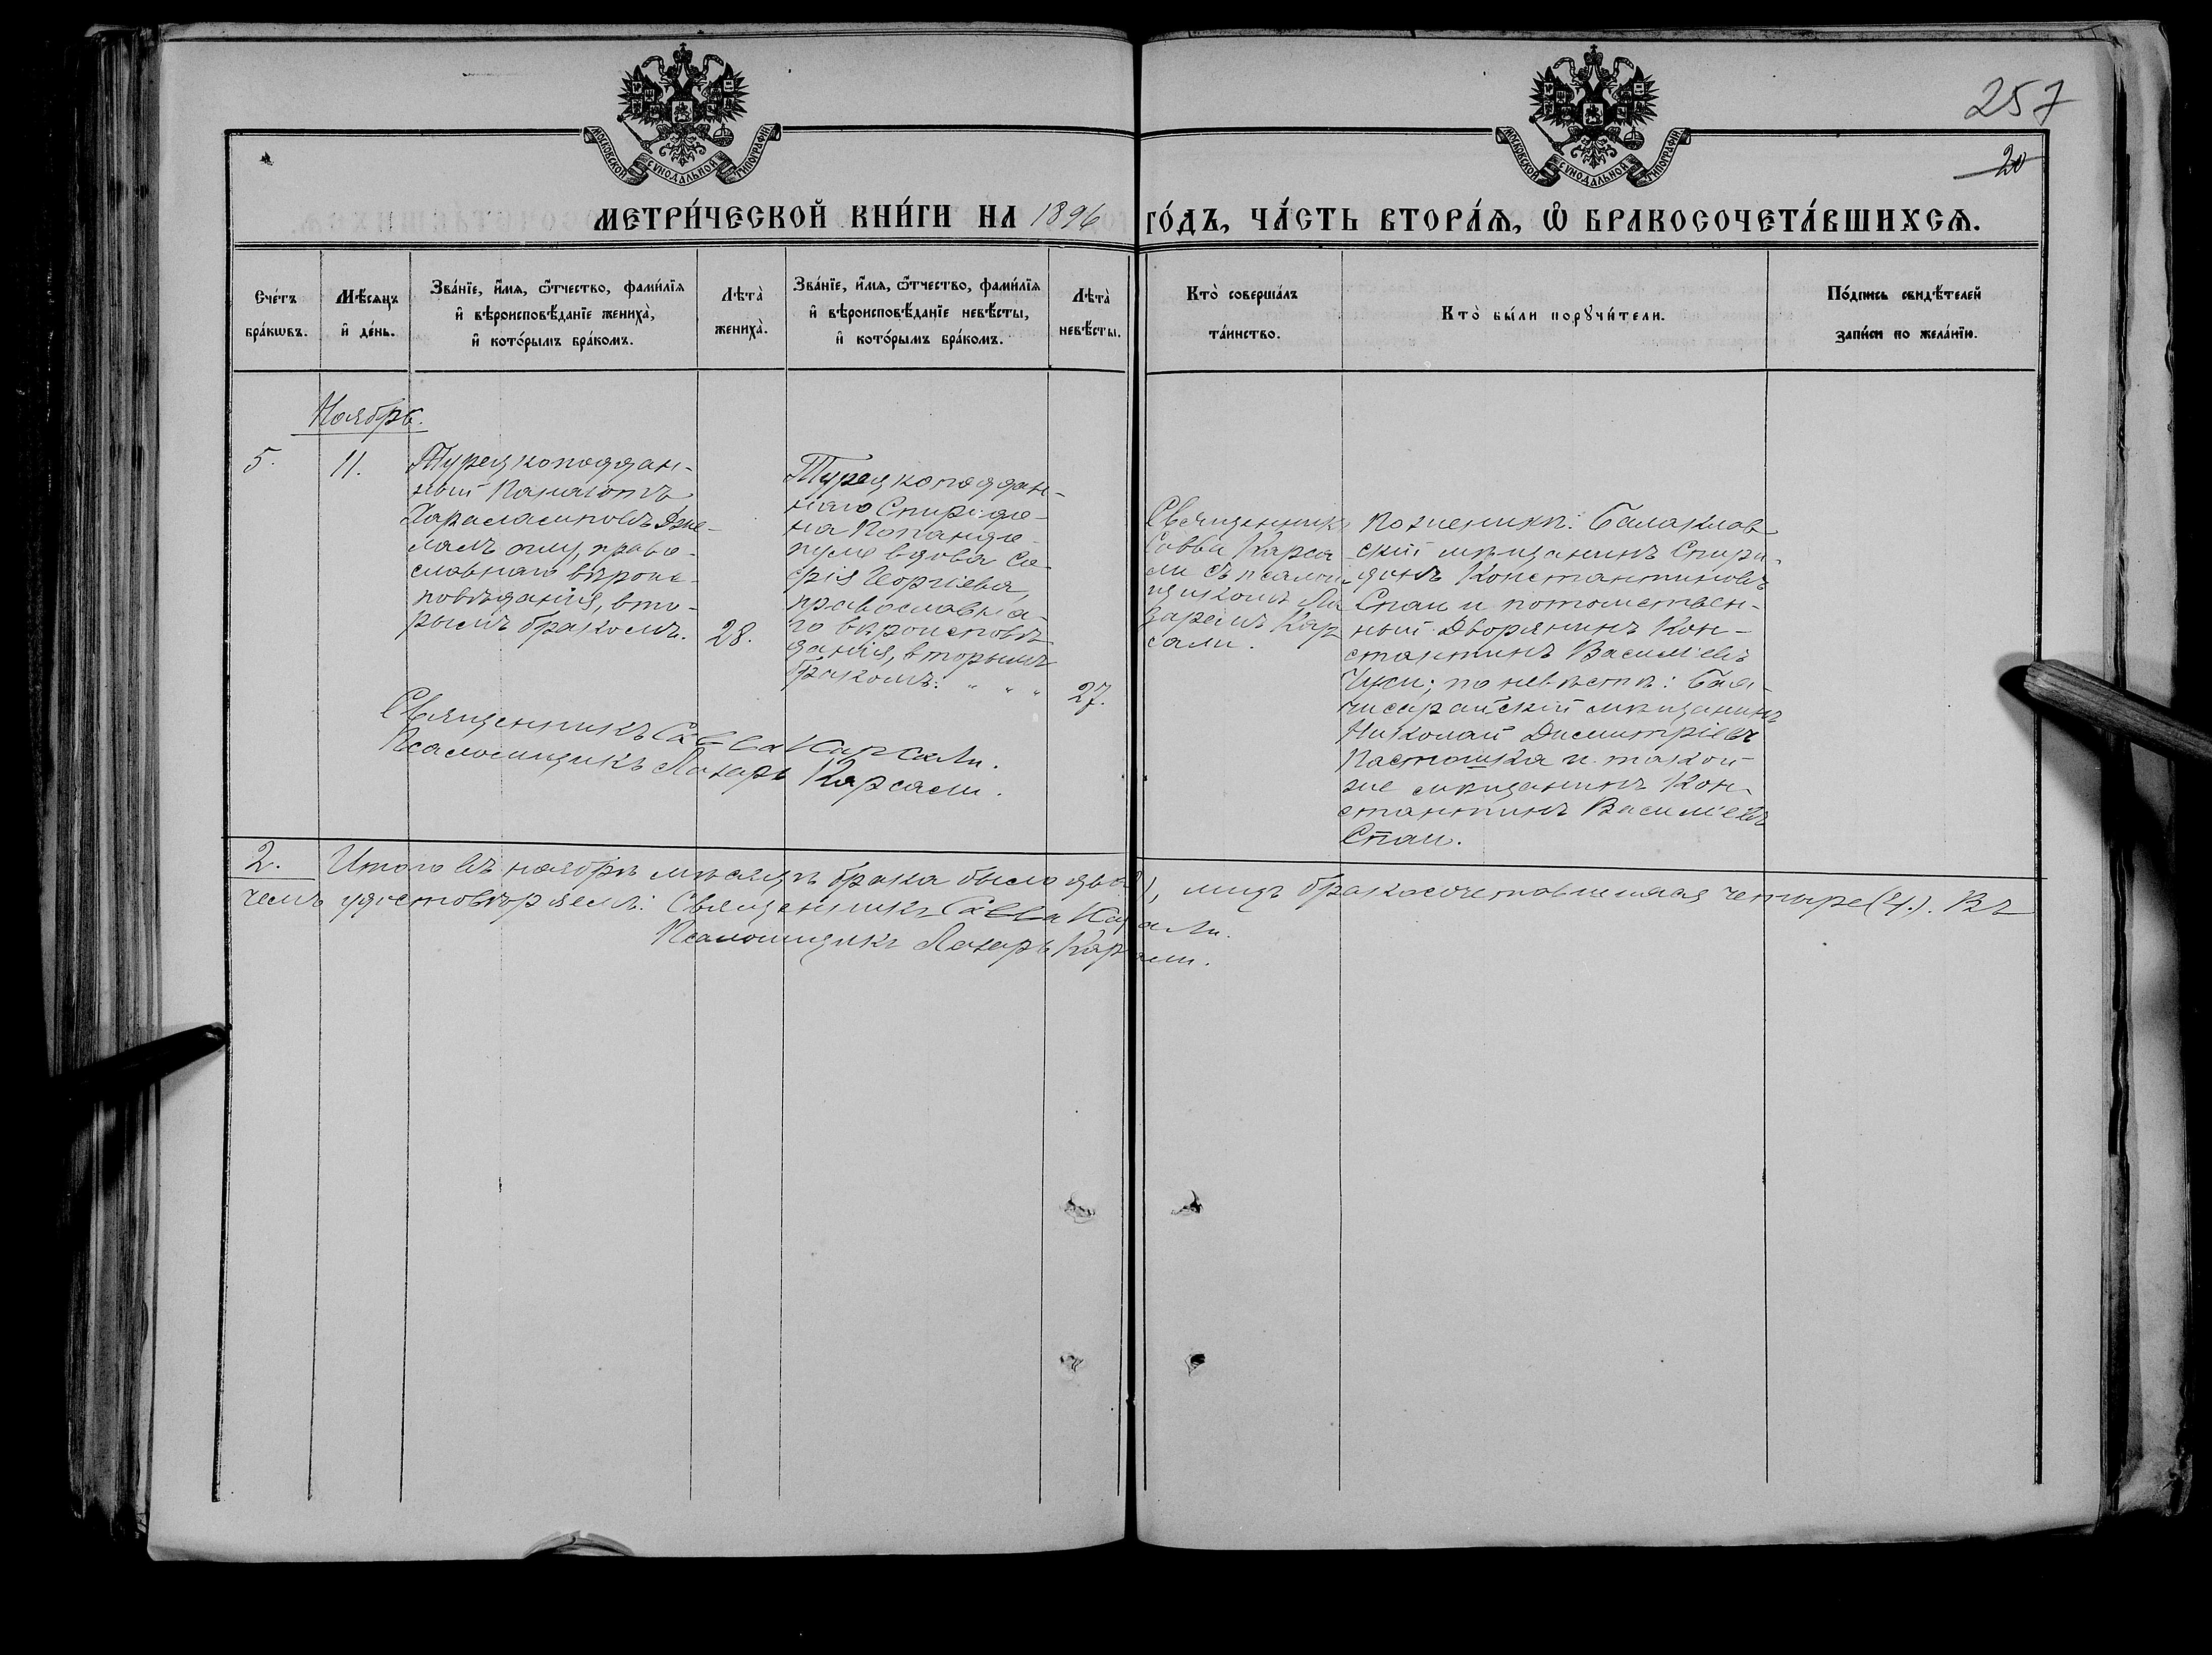 257
20
МОСКОВСКОЙ СУНОДАЛЬНОЙ ТИПОГРАФІИ
МОСКОВСКОЙ СУНОДАЛЬНОЙ ТИПОГРАФІИ
МЕТРИ́ЧЕСКОЙ КНИ́ГИ НА 1896 ГО́ДЪ, ЧА́СТЬ ВТОРА́Ѧ, Ѡ҆ БРАКОСОЧЕТА́ВШИХСѦ.
Сче́тъ
бра́кѡвъ.
Мѣ́сѧцъ
и҆ де́нь.
Зва́нїе, и҆́мѧ, ѻ҆́тчество, фами́лїѧ
и҆ вѣроисповѣ́данїе жениха̀,
и҆ кото́рымъ бра́комъ.
Лѣ́та
жениха̀.
Зва́нїе, и҆́мѧ, ѻ҆́тчество, фами́лїѧ
и҆ вѣроисповѣ́данїе невѣ́сты,
и҆ кото́рымъ бра́комъ.
Лѣ́та
невѣ́сты.
Кто̀ соверша́лъ
та́инство.
Кто̀ бы́ли порꙋчи́тели.
По́дпись свидѣ́телей
за́писи по жела́нїю.
Ноябрь.
5.
11.
Турецкоподдан-
ный Панаіотъ
Харалампіевъ
православнаго вѣроис-
повѣданія, вто-
рымъ бракомъ.
28.
Турецкоподдан-
наго Спиридо-
на Попандо-
пуло вдова Со-
фія Георгіева,
православна-
го вѣроисповѣ
данія, вторымъ
бракомъ. " " "
27.
Священникъ
Савва Карса
ли съ псалом-
щикомъ Ла
заремъ Кар
сали.
По женихѣ: Балаклав
скій мѣщанинъ Спири-
донъ Константиновъ
Спаи и потомствен-
ный дворянинъ Кон-
стантинъ Васильевъ
Чуси; по невѣстѣ: Бах-
чисарайскій мѣщанинъ
Николай Димитріевъ
Пастошка и такой-
же мѣщанинъ Кон-
стантинъ Васильевъ
Спаи.
Священникъ Савва Карсали.
Псаломщикъ Лазарь Карсали.
2.
Итого въ ноябрѣ мѣсяцѣ брака было два, лицъ бракосочетавшихся четыре (4). Въ
чемъ удостовѣряемъ: Священникъ Савва Карсали.
Псаломщикъ Лазарь Карсали.